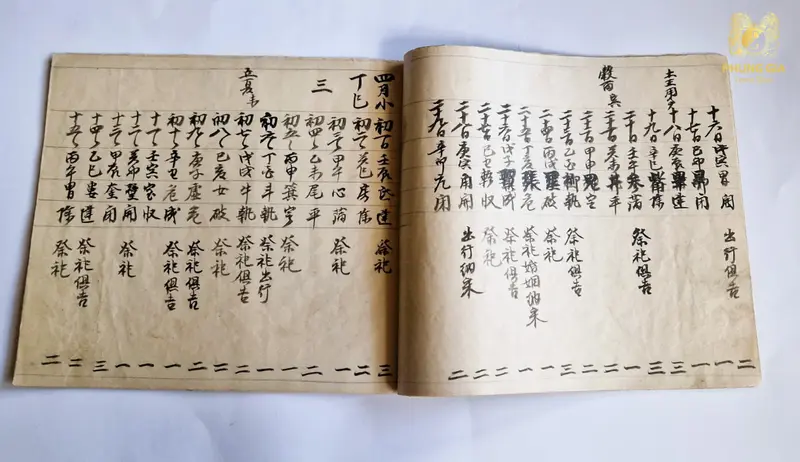 十六日戊寅胃開 出行俱吉 二
十七日己卯昴閉 一
土王用事
十八日庚辰畢建 一
十九日辛巳觜除 三
二十日壬午参滿 祭祀俱吉 三
穀雨
二十一日癸未井平 一
二十二日甲申鬼定 二
二十三日乙酉柳執 祭祀俱吉 二
二十四日丙戌星破 祭祀 三
二十五日丁亥張危 祭祀婚姻納采 二
二十六日戊子翼成 祭祀俱吉 一
二十七日己丑軫收 祭祀 一
二十八日庚寅角開 出行納采 二
二十九日辛卯亢閉 二
四月小
丁巳
三
初一日壬辰氐建 祭祀 三
初二日癸巳房除 二
初三日甲午心滿 祭祀 一
初四日乙未尾平 二
初五日丙申箕定 祭祀 一
初六日丁酉斗執 祭祀出行 一
立夏
初七日戊戌牛執 祭祀俱吉 二
初八日己亥女破 祭祀 二
初九日庚子虛危 祭祀俱吉 二
初十日辛丑危成 祭祀俱吉 一
十一日壬寅室收 一
十二日癸卯壁開 祭祀 一
十三日甲辰奎閉 三
十四日乙巳婁建 祭祀俱吉 二
十五日丙午胃除 祭祀 二